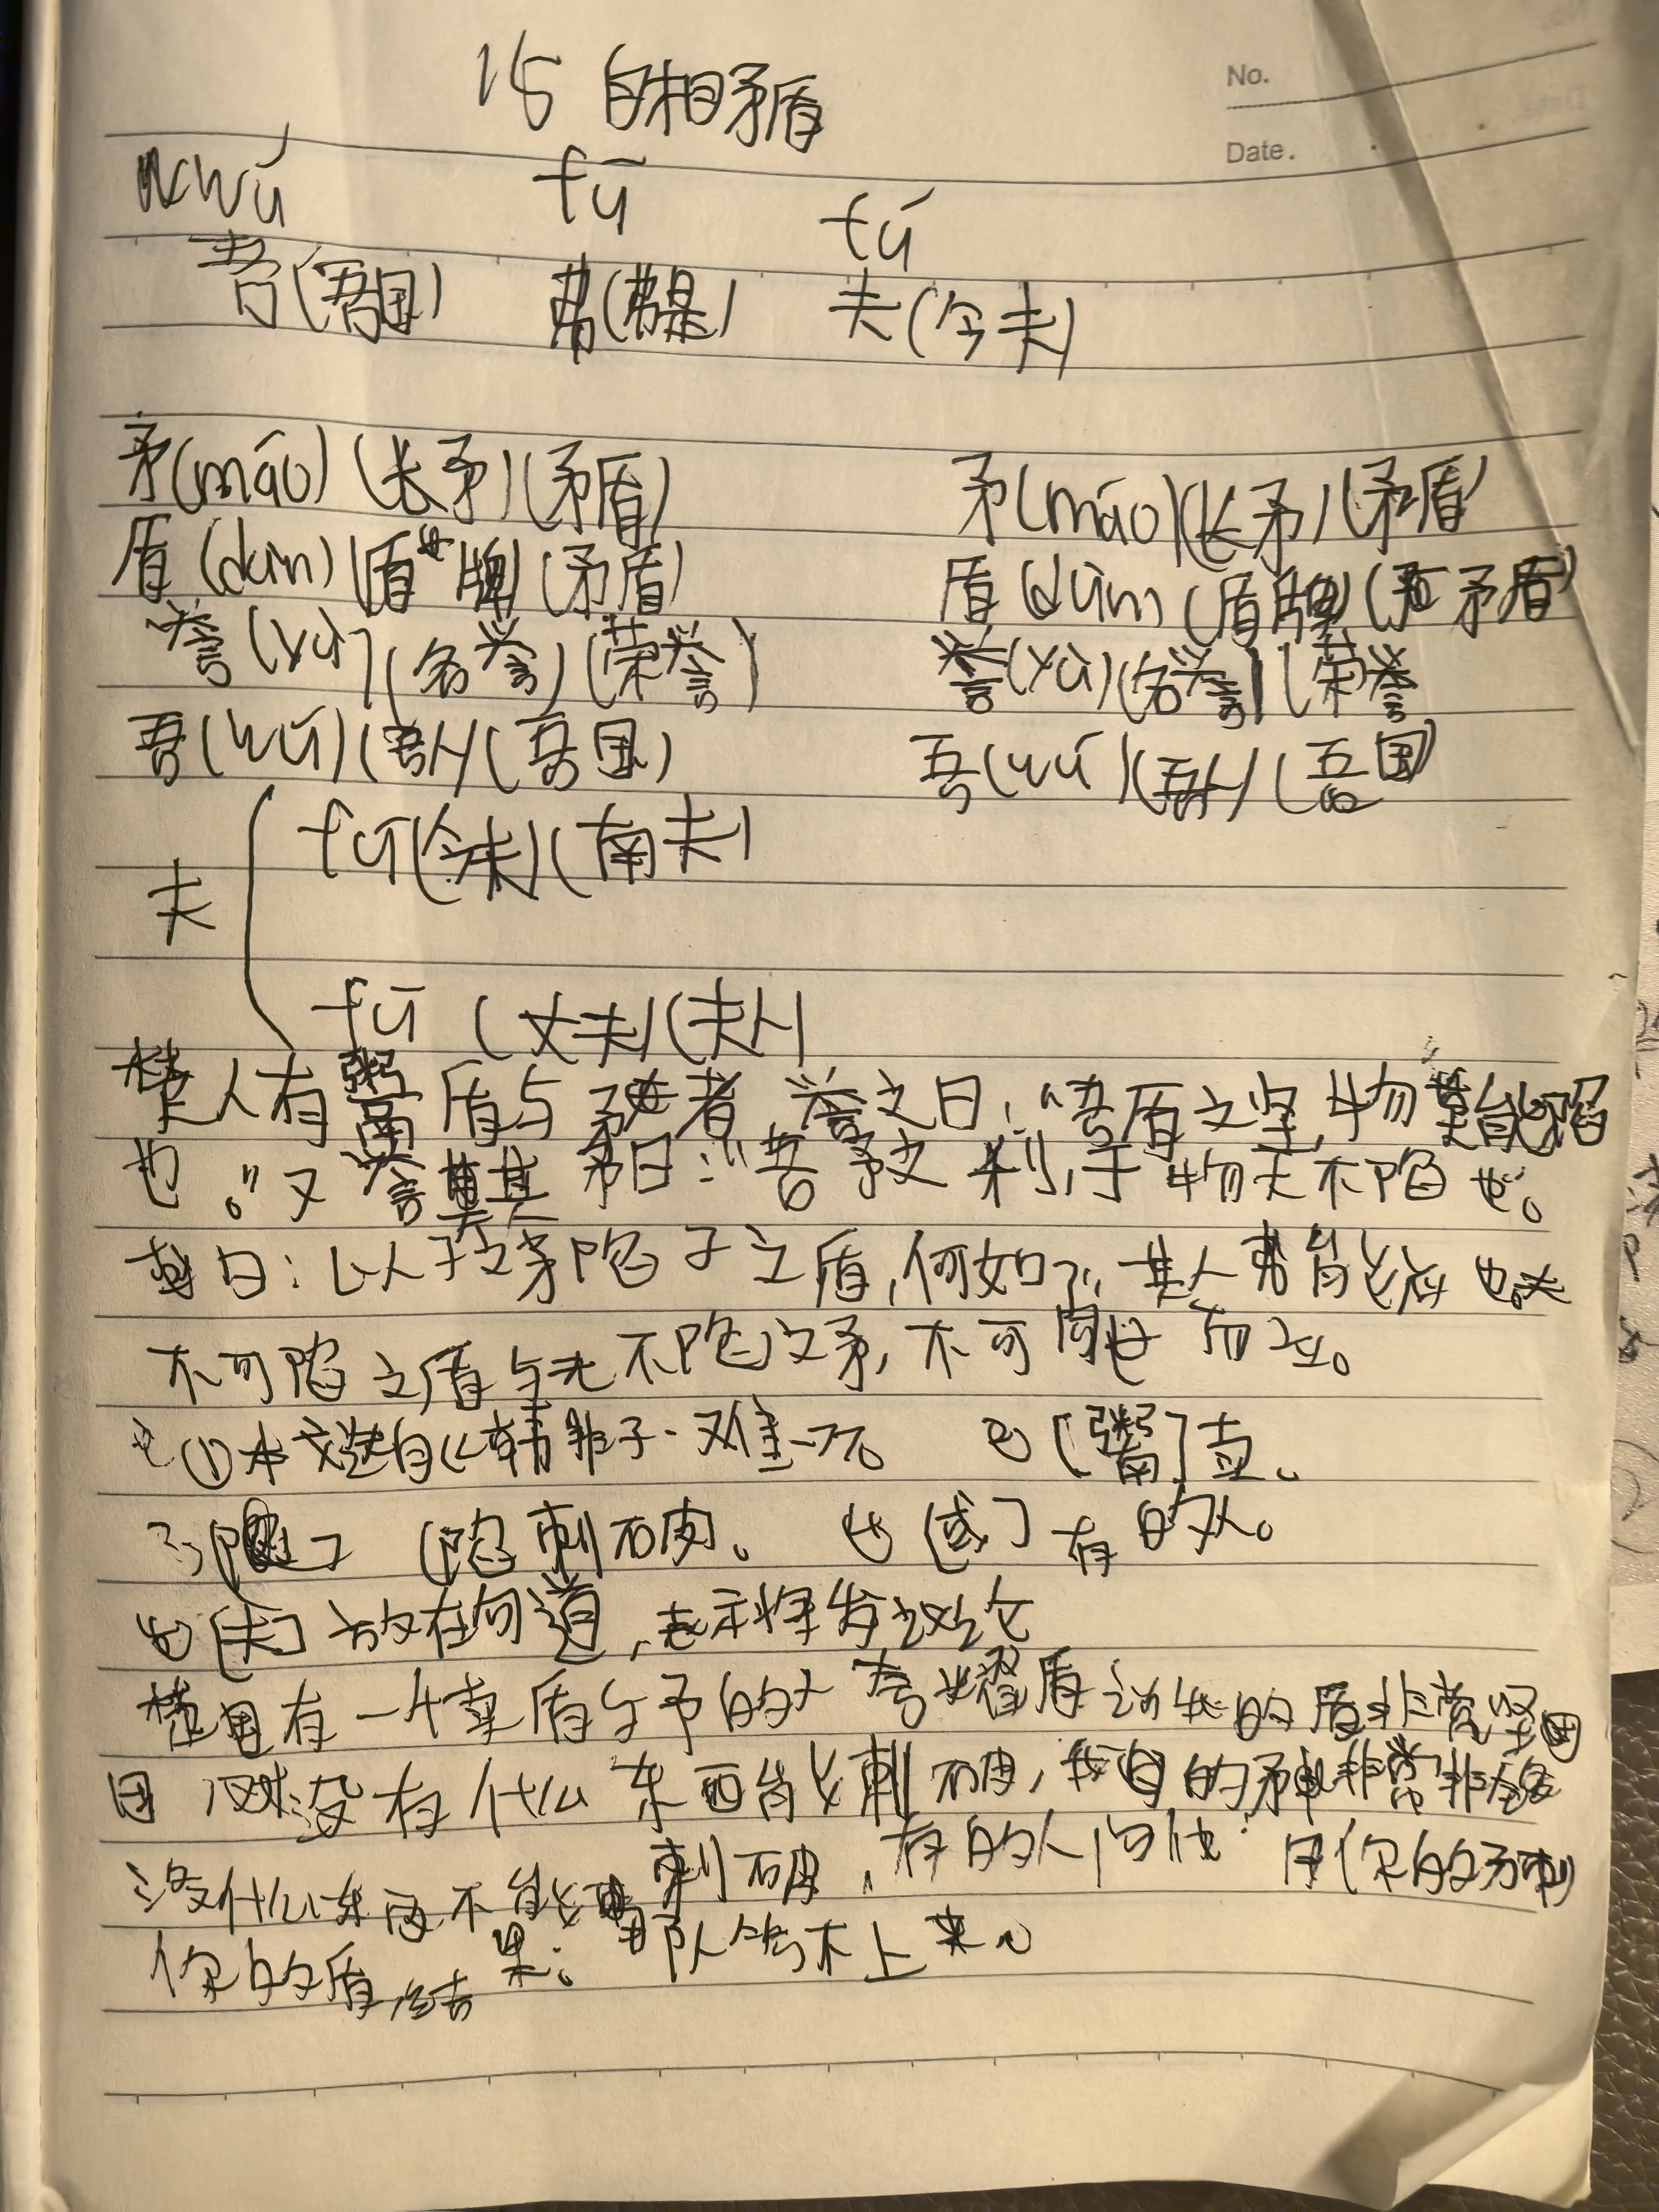 15 自相矛盾
No.
Date.
wú fū fú
吾(吾国) 弗(弗是) 夫(今夫)
矛(máo)(长矛)(矛盾) 矛(máo)(长矛)(矛盾)
盾(dùn)(盾牌)(矛盾) 盾(dùn)(盾牌)(矛盾)
誉(yù)(名誉)(荣誉) 誉(yù)(名誉)(荣誉
吾(wú)(吾人)(吾国) 吾(wú)(吾人)(吾国
fú(今夫)(南夫)
夫
fū (丈夫)(夫人)
楚人有鬻盾与矛者,誉之曰:“吾盾之坚,物莫能陷
也。”又誉其矛曰:“吾矛之利,于物无不陷也。
曰:以子之矛陷子之盾,何如?”其人弗能应也。夫
不可陷之盾与无不陷之矛,不可同世而立。
①本文选自《韩非子·难一》。 ②[鬻]卖。
③ 陷 刺破。 [或]有的人。
[夫]放在句道,表示将发议论
楚国有一个卖盾与矛的人夸耀盾说我的盾非常坚固
没有什么东西能刺破,我的矛非常非锐
没什么东西不能刺破,有的人问他:用你的矛刺
你的盾,结果: 那人答不上来。